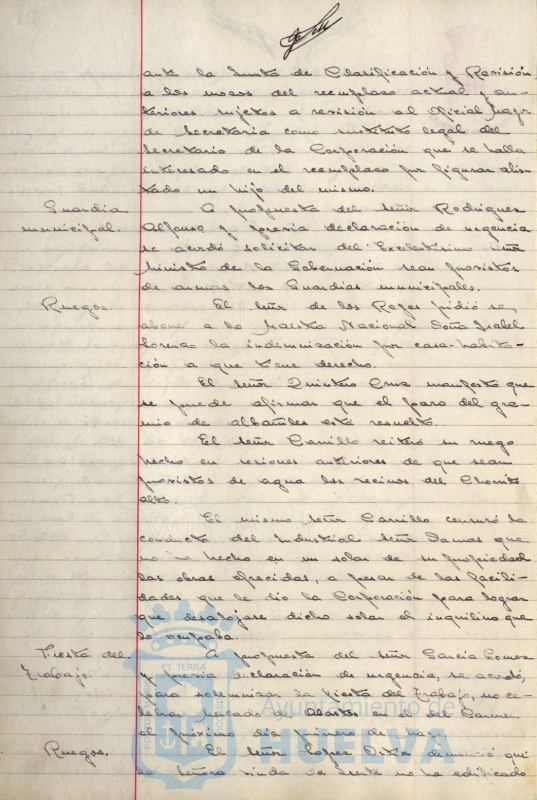 ante la Junta de Clasificación y Revisión,
a los mozos del reemplazo actual y an-
teriores sujetos a revisión al Oficial Mayor
de Secretaria como sustituto legal del
Secretario de la Corporación que se halla
interesado en el reemplazo por figurar alis-
tado un hijo del mismo.
Guardia municipal.
A propuesta del Señor Rodriguez
Alfonso y previa declaración de urgencia
se acordó solicitar del Excelentísimo señor
Ministro de la Gobernación sean provistos
de armas los Guardias municipales.
Ruegos.
El Señor de los Rojas pidió se
abone a la Maestra Nacional Doña Isabel
Lorenzo la indemnización por casa-habita-
ción a que tiene derecho.
El Señor Quintero Cruz manifestó que
se puede afirmar que el paro del gre-
mio de albañiles está resuelto.
El Señor Carrillo reiteró su ruego
hecho en sesiones anteriores de que sean
provistos de agua los vecinos del Chorrito
alto.
El mismo Señor Carrillo censuró la
conducta del Industrial Señor Damas que
no ha hecho en un solar de su propiedad
las obras ofrecidas, a pesar de las facili-
dades que le dio la Corporación para lograr
que desalojase dicho solar el inquilino que
lo ocupaba.
Fiesta del Trabajo.
A propuesta del Señor García Gomez
y previa declaración de urgencia, se acordó,
para solemnizar la fiesta del Trabajo, no ce-
lebrar mercado de Abastos en el del Carmen
el próximo día primero de Mayo.
Ruegos.
El Señor Lopez denunció que
la Señora viuda de no ha edificado
ET TERRAE
Ayuntamiento de
HUELVA